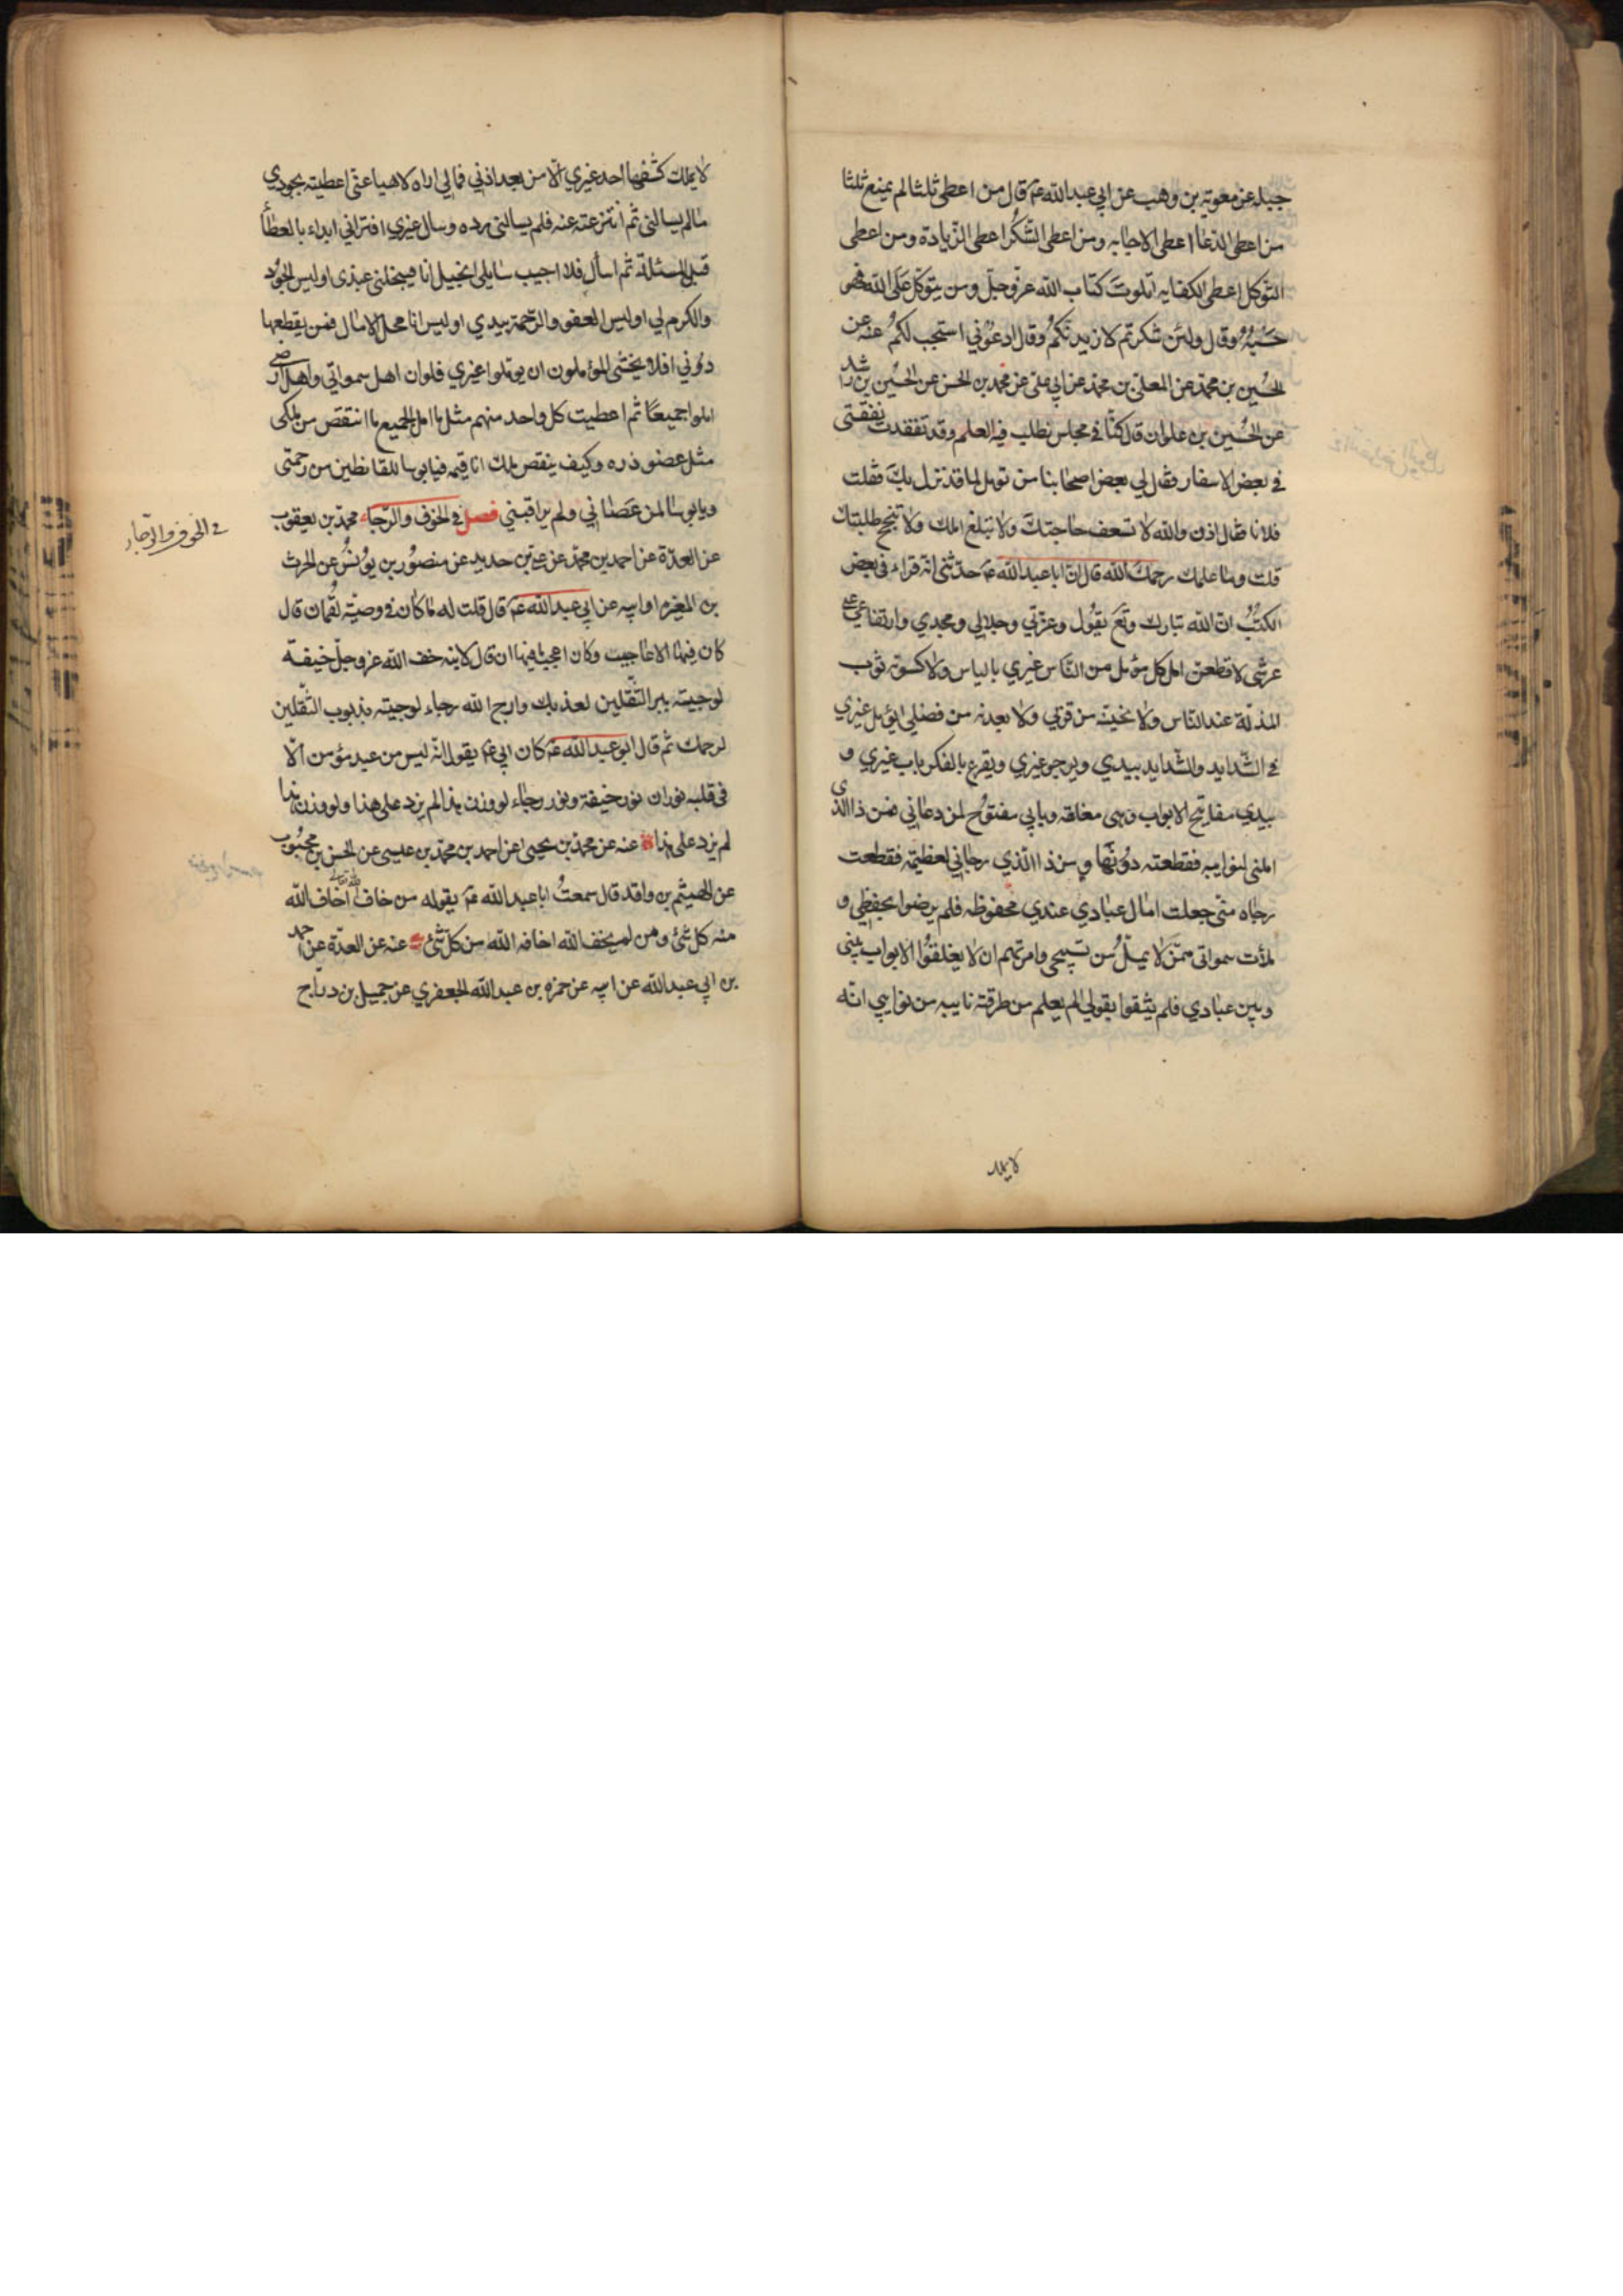 جبله عن معوية بن وهب عن ابي عبدالله عم قال من اعطى ثلثا لم يمنع ثلثا
من اعطى الدعا اعطى الاجابه ومن اعطى الشكر اعطى الزيادة ومن اعطى
التوكل اعطى الكفايه اتلوت كتاب الله عز وجل ومن يتوكل على الله فهو
حسبه وقال ولئن شكرتم لازيدنكم وقال ادعوني استجب لكم عنه عن
الحسين بن محمد عن المعلى بن محمد عن ابي علي عن محمد بن الحسن عن الحسين بن راشد
عن الحسين بن علوان قال كنا في مجلس نطلب فيه العلم وقد تفقدت نفقتي
في بعض الاسفار فقال لي بعض اصحابنا من تومل لما قد نزل بك فقلت
فلانا فقال اذن والله لا تسعف حاجتك ولا تبلغ املك ولا تنجح طلبتك
قلت وما علمك رحمك الله قال ان ابا عبدالله عم حدثني انه قراء في بعض
الكتب ان الله تبارك وتع يقول وعزتي وجلالي ومجدي وارتفاعي على
عرشي لاقطعن امل كل مؤمل من الناس غيري بالياس ولاكسونه ثوب
المذلة عند الناس ولانحينه من قربي ولابعدنه من فضلي ايؤمل غيري
في الشدايد والشدايد بيدي ويرجو غيري ويقرع بالفكر باب غيري و
بيدي مفاتيح الابواب وهي مغلقه وبابي مفتوح لمن دعاني فمن ذا الذى
املني لنوايبه فقطعته دونها ومن ذا الذي رجاني لعظيمة فقطعت
رجاه مني جعلت امال عبادي عندي محفوظه فلم يرضوا بحفظي و
ملأت سمواتي ممن لا يمل من تسبيحي وامرتهم ان لا يغلقوا الابواب بيني
وبين عبادي فلم يثقوا بقولي الم يعلم من طرقته نايبه من نوايبي انه
لا يملك
لا يملك كشفها احد غيري الا من بعد اذني فمالي اراه لاهيا عني اعطيته بجودي
مالم يسالني ثم انتزعته عنه فلم يسالني رده وسال غيري افتراني ابداء بالعطاء
قبل المسئلة ثم اسأل فلا اجيب سايلي ابخيل انا فيبخلني عبدى اوليس الجود
والكرم لي اوليس العفو والرحمة بيدي اوليس انا محل الامال فمن يقطعها
دوني افلا يخشى المؤملون ان يوملوا غيري فلو ان اهل سمواتي واهل ارضي
املوا جميعا ثم اعطيت كل واحد منهم مثل ما امل الجميع ما انتقص من ملكى
مثل عضو ذره وكيف ينقص ملك انا قيمه فيا بوسا للقانطين من رحمتي
ويا بوسا لمن عصاني ولم يراقبني فصل في الخوف والرجاء محمد بن يعقوب
في الخوف والرجاء
عن العدة عن احمد بن محمد عن علي بن حديد عن منصور بن يونس عن الحرث
بن المغيره او ابيه عن ابي عبدالله عم قال قلت له ما كان في وصية لقمان قال
كان فيها الاعاجيب وكان اعجب ما فيها ان قال لابنه خف الله عز وجل خيفة
لو جيته ببر الثقلين لعذبك وارج الله رجاء لو جيته بذنوب الثقلين
لرحمك ثم قال ابو عبدالله عم كان ابي عم يقول انه ليس من عبد مؤمن الا
في قلبه نوران نور خيفة ونور رجاء لو وزن هذا لم يزد على هذا ولو وزن هذا
لم يزد على هذا عنه عن محمد بن يحيى عن احمد بن محمد بن عيسى عن الحسن بن محبوب
عن الهيثم بن واقد قال سمعت ابا عبدالله عم يقوله من خاف الله تعالى اخاف الله
منه كل شئ ومن لم يخف الله اخافه الله من كل شئ عنه عن العدة عن احمد
بن ابي عبدالله عن ابيه عن حمزه بن عبدالله الجعفري عن جميل بن دراج